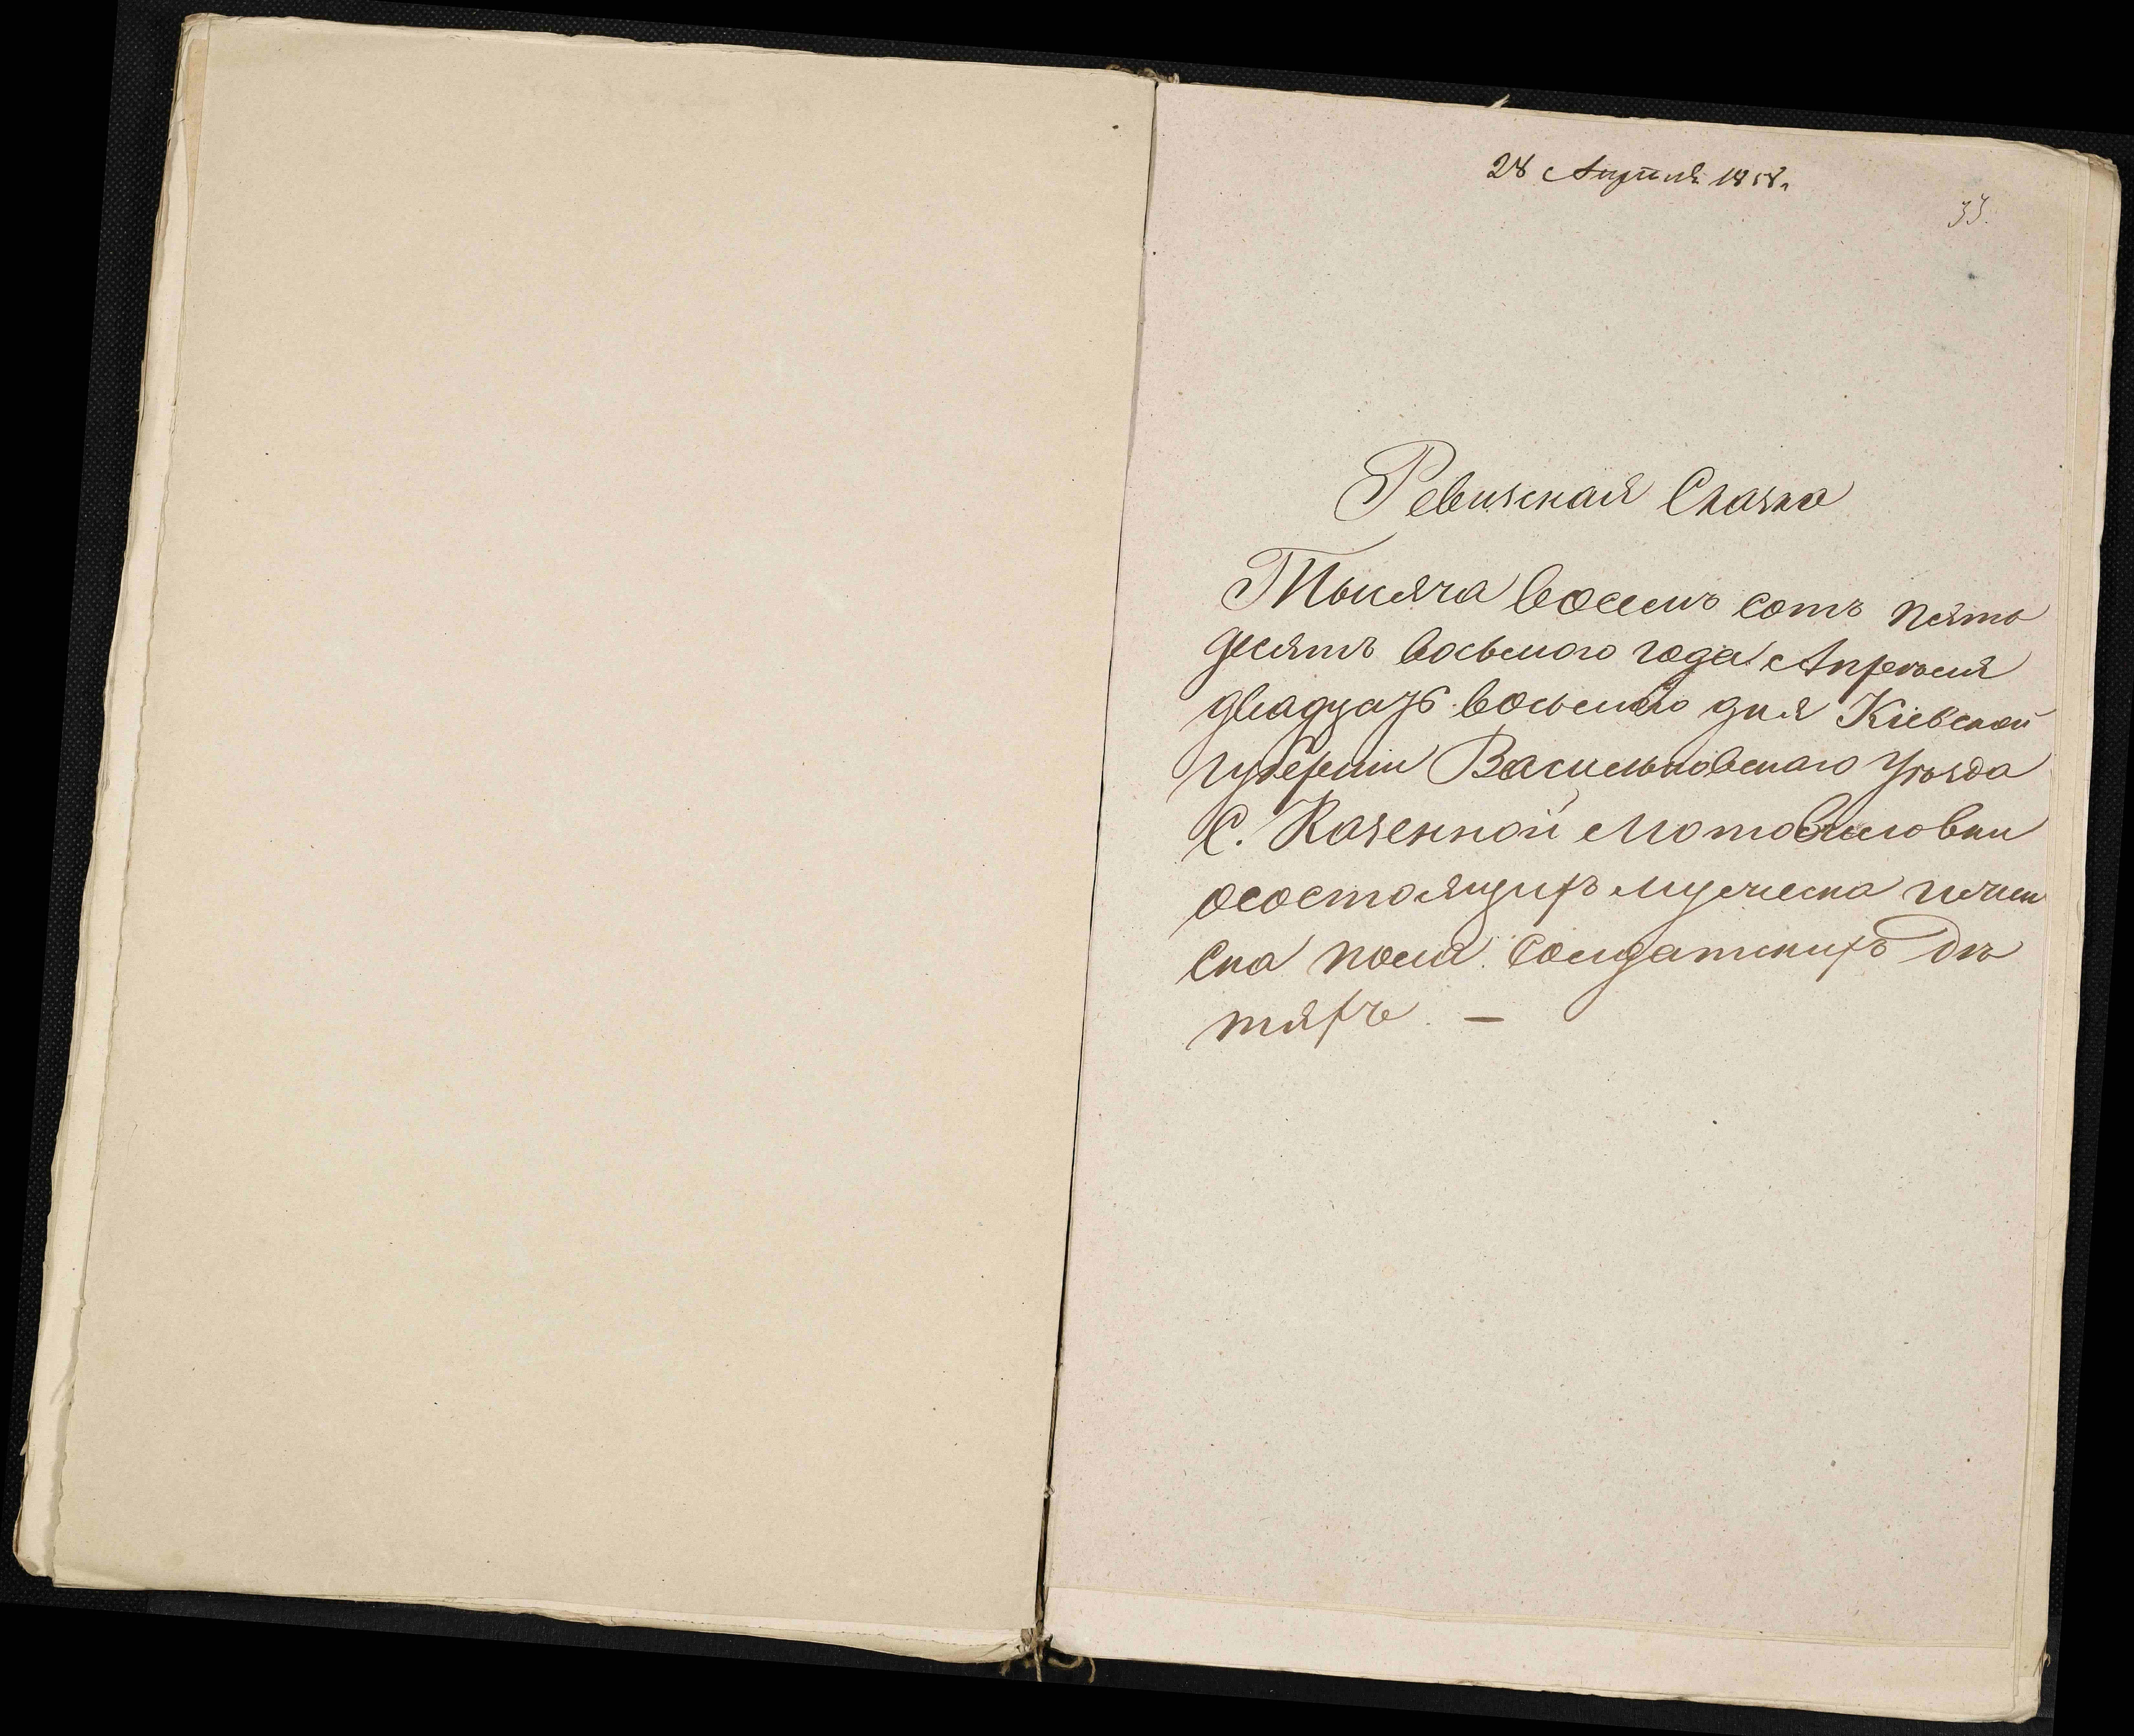 28 Апрѣля 1858.
33.
Ревизская Сказка
Тысяча восемъ сотъ пять
десятъ восьмого года Апрѣля
двадцать восьмого дня Кіевской
губерніи Васильковскаго Уѣзда
С. Казенной Мотовиловки
осостоящихъ мужеска иженс
ска пола солдатскихъ дѣ
тяхъ. —